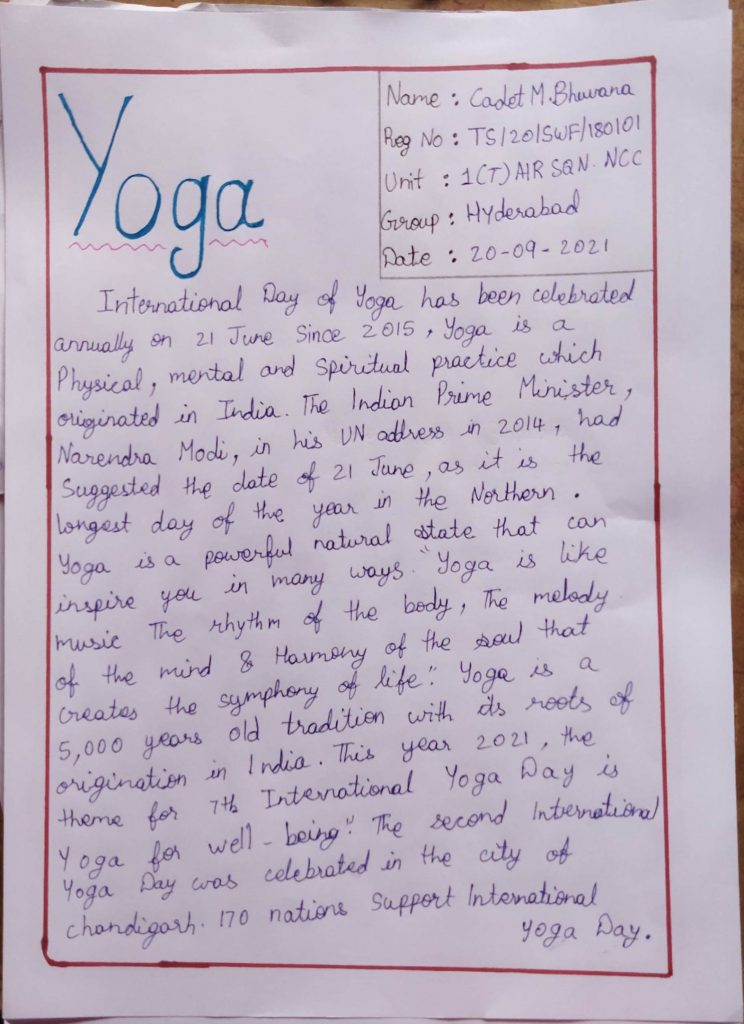 Yoga
Name : Cadet M.Bhuvana
Reg No : TS/20/SWF/180101
Unit : 1(T) AIR SQN. NCC
Group : Hyderabad
Date : 20-09-2021
International Day of Yoga has been celebrated
annually on 21 June Since 2015, Yoga is a
Physical, mental and Spiritual practice which
originated in India. The Indian Prime Minister,
Narendra Modi, in his UN address in 2014, had
Suggested the date of 21 June, as it is the
longest day of the year in the Northern.
Yoga is a powerful natural state that can
inspire you in many ways. "Yoga is like
music The rhythm of the body, The melody
of the mind & Harmony of the soul that
creates the symphony of life". Yoga is a
5,000 years old tradition with its roots of
origination in India. This year 2021, the
theme for 7th International Yoga Day is
Yoga for well-being". The second International
Yoga Day was celebrated in the city of
chandigarh. 170 nations Support International
Yoga Day.